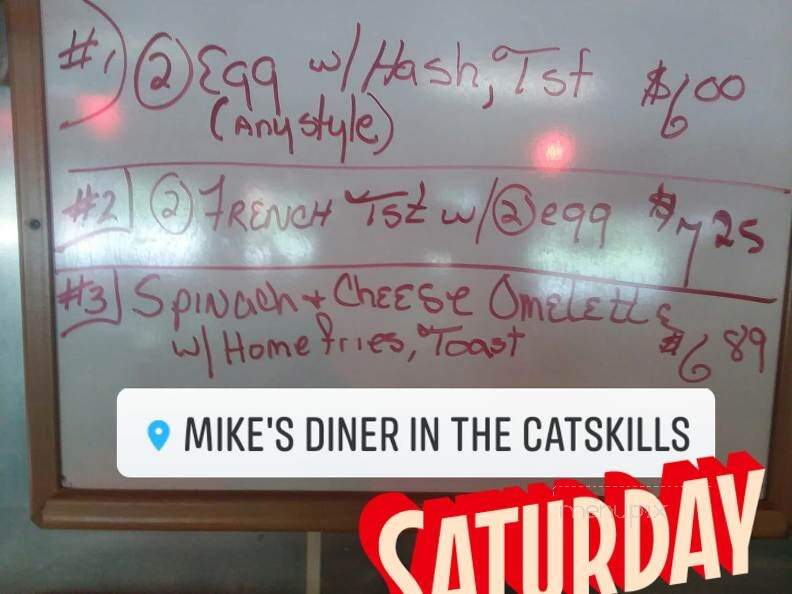 #1) ② Egg w/ Hash, Tst $6 00
(Any style)
#2 ② French Tst w/ ② egg $7 25
#3 Spinach + Cheese Omelette
w/ Home fries, Toast $6 89
MIKE'S DINER IN THE CATSKILLS
SATURDAY
menupix